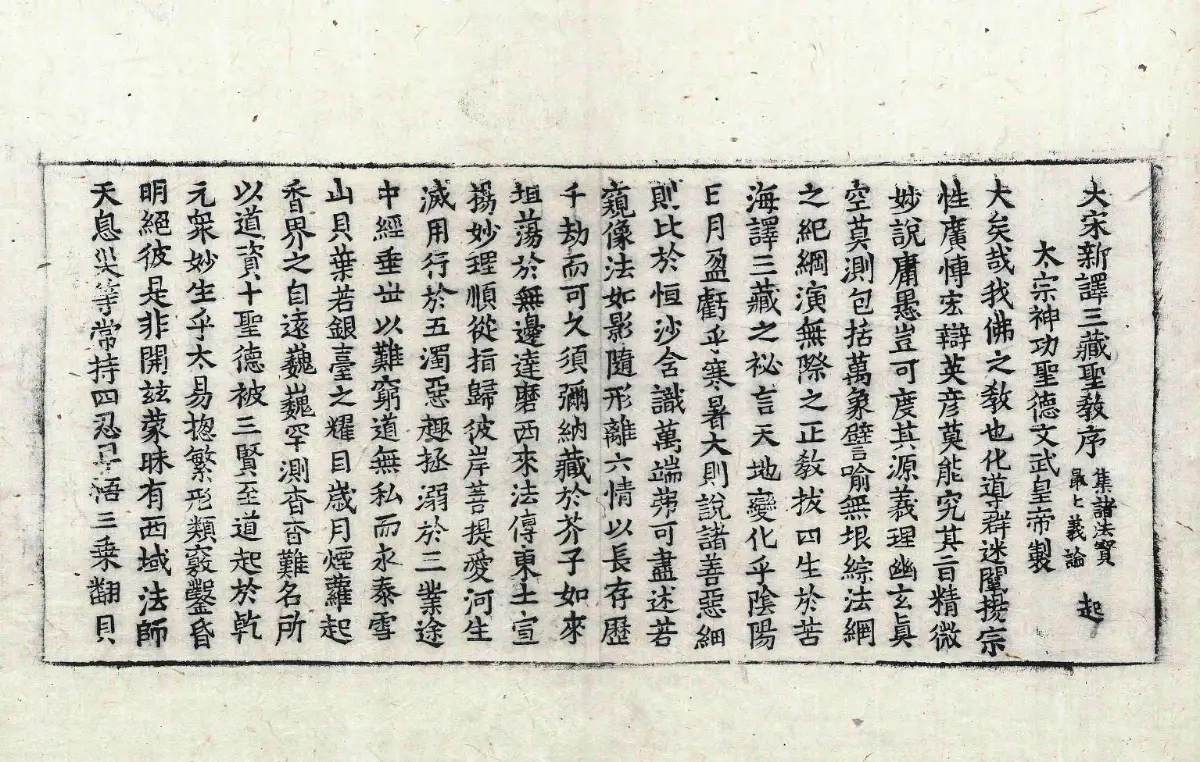 大宋新譯三藏聖敎序 集諸法寶最上義論 起
太宗神功聖德文武皇帝製
大矣哉我佛之敎也化導群迷闡揚宗
性廣博宏辯英彦莫能究其旨精微
妙說庸愚豈可度其源義理幽玄眞
空莫測包括萬象譬喻無垠綜法網
之紀綱演無際之正敎拔四生於苦
海譯三藏之祕言天地變化乎陰陽
日月盈虧乎寒暑大則說諸善惡細
則比於恒沙含識萬端弗可盡述若
窺像法如影隨形離六情以長存歷
千劫而可久須彌納藏於芥子如來
坦蕩於無邊達磨西來法傳東土宣
揚妙理順從指歸彼岸菩提愛河生
滅用行於五濁惡趣拯溺於三業途
中經垂世以難窮道無私而永泰雪
山貝葉若銀臺之耀目歲月煙蘿起
香界之自遠巍巍罕測杳杳難名所
以道資十聖德被三賢至道起於乾
元衆妙生乎太易揔繁形類竅鑿昏
明絕彼是非開玆蒙昧有西域法師
天息灾等常持四忍早悟三乘翻貝